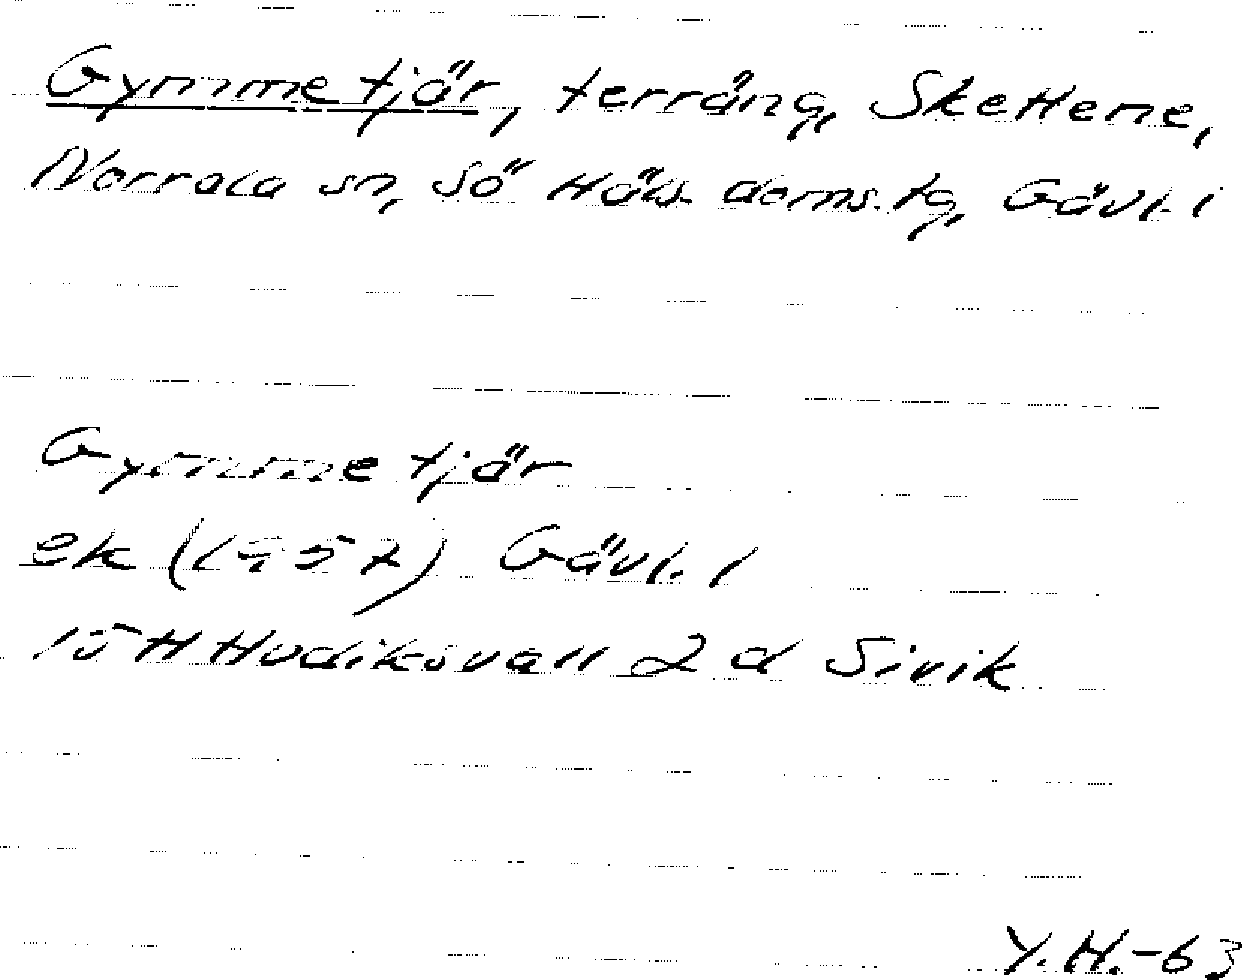 Gymmetjär, terräng, Skettene,
Norrala sn, Sö Häls. doms.tg, Gävl. l
Gymmetjär
ek (1957) Gävl. l
15H Hudiksvall 2 d Sivik
Y.H.-63